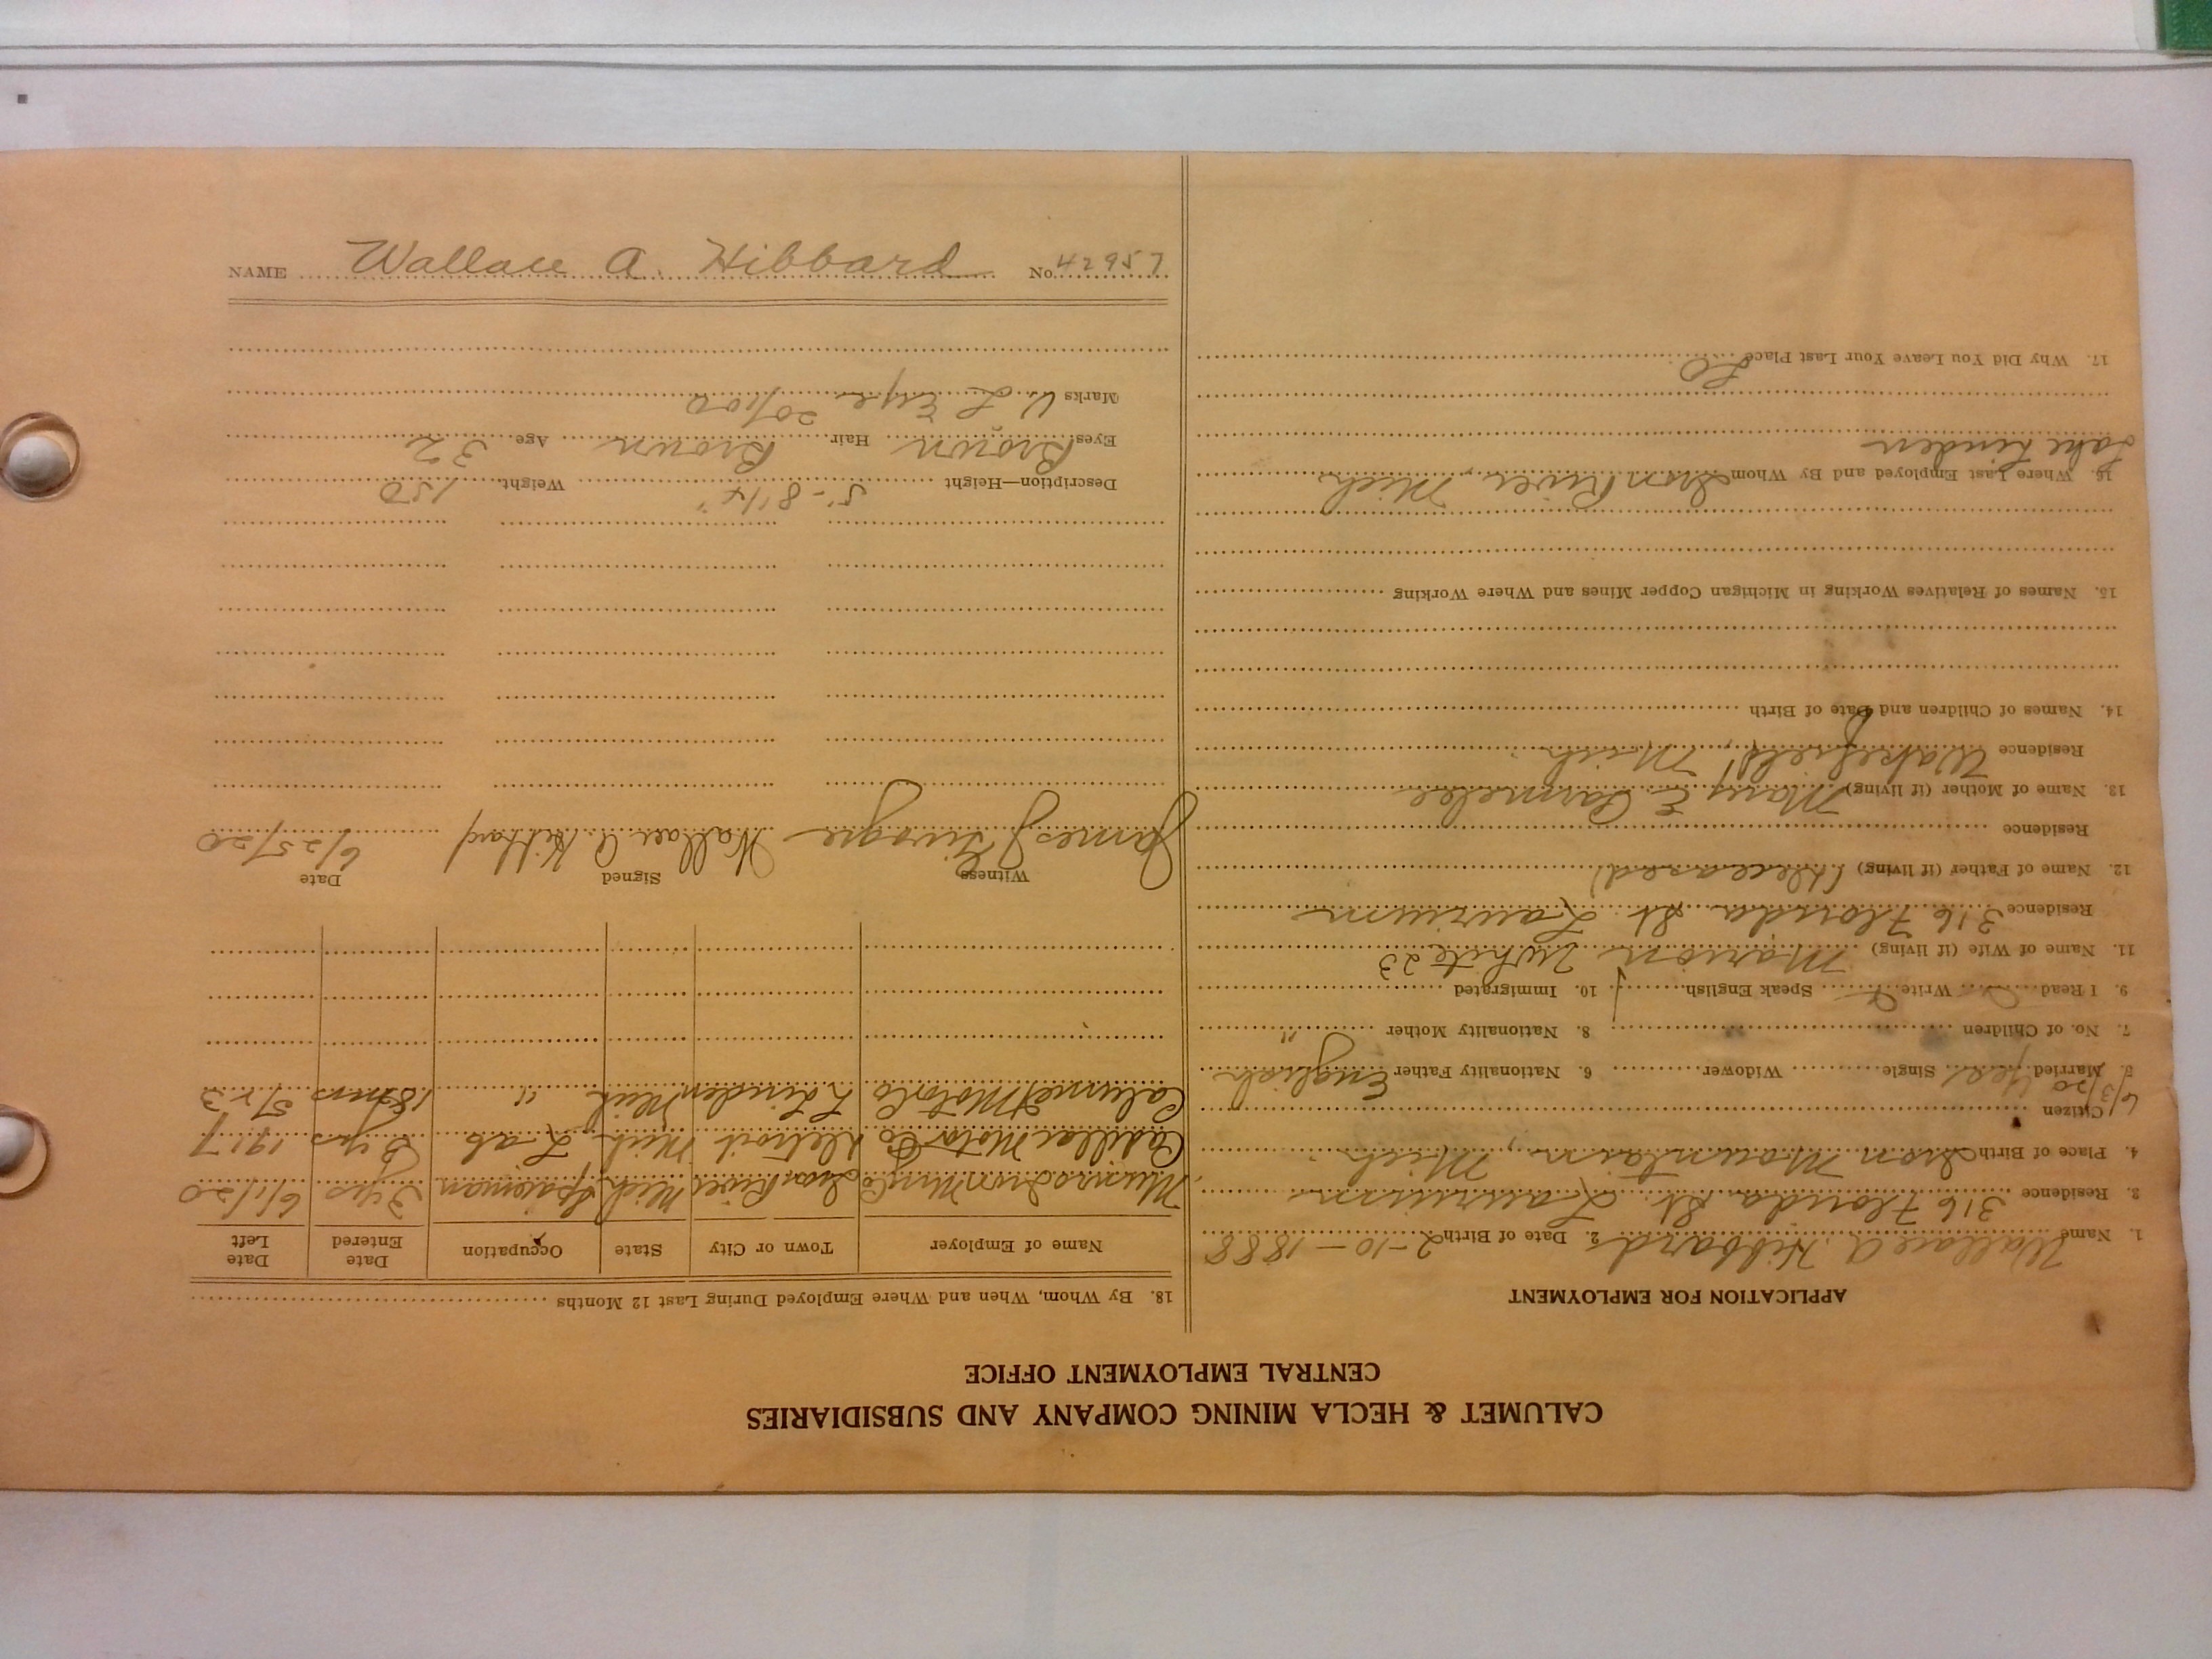 CALUMET & HECLA MINING COMPANY AND SUBSIDIARIES
CENTRAL EMPLOYMENT OFFICE
APPLICATION FOR EMPLOYMENT
1. Name Wallace A. Hibbard 2. Date of Birth 2-10-1888
3. Residence 316 Florida St. Laurium
4. Place of Birth Iron Mountain, Mich
Citizen
6/3/20
5. Married Yes Single Widower 6. Nationality Father English
7. No. of Children 8. Nationality Mother "
9. I Read Write Speak English 10. Immigrated
11. Name of Wife (if living) Marion White 23
Residence 316 Florida St. Laurium
12. Name of Father (if living) (Deceased)
Residence
13. Name of Mother (if living) Mary E Parmelee
Residence Wakefield, Mich
14. Names of Children and Date of Birth
15. Names of Relatives Working in Michigan Copper Mines and Where Working
16. Where Last Employed and By Whom Iron River, Mich.
Lake Linden
17. Why Did You Leave Your Last Place
18. By Whom, When and Where Employed During Last 12 Months
Name of Employer Town or City State Occupation Date Entered Date Left
Munro Iron Mng Co Iron River Mich 3 yrs 6/1/20
Cadillac Motor Co Detroit Mich Lab 1917
Calumet Motor Co L Linden Mich " 18 mos
Witness Signed Date
James J Wallace A. Hibbard 6/25/20
Description—Height 5'-8 1/4" Weight 150
Eyes Brown Hair Brown Age 32
Marks V. L Eye 20/100
NAME Wallace A. Hibbard No. 42957